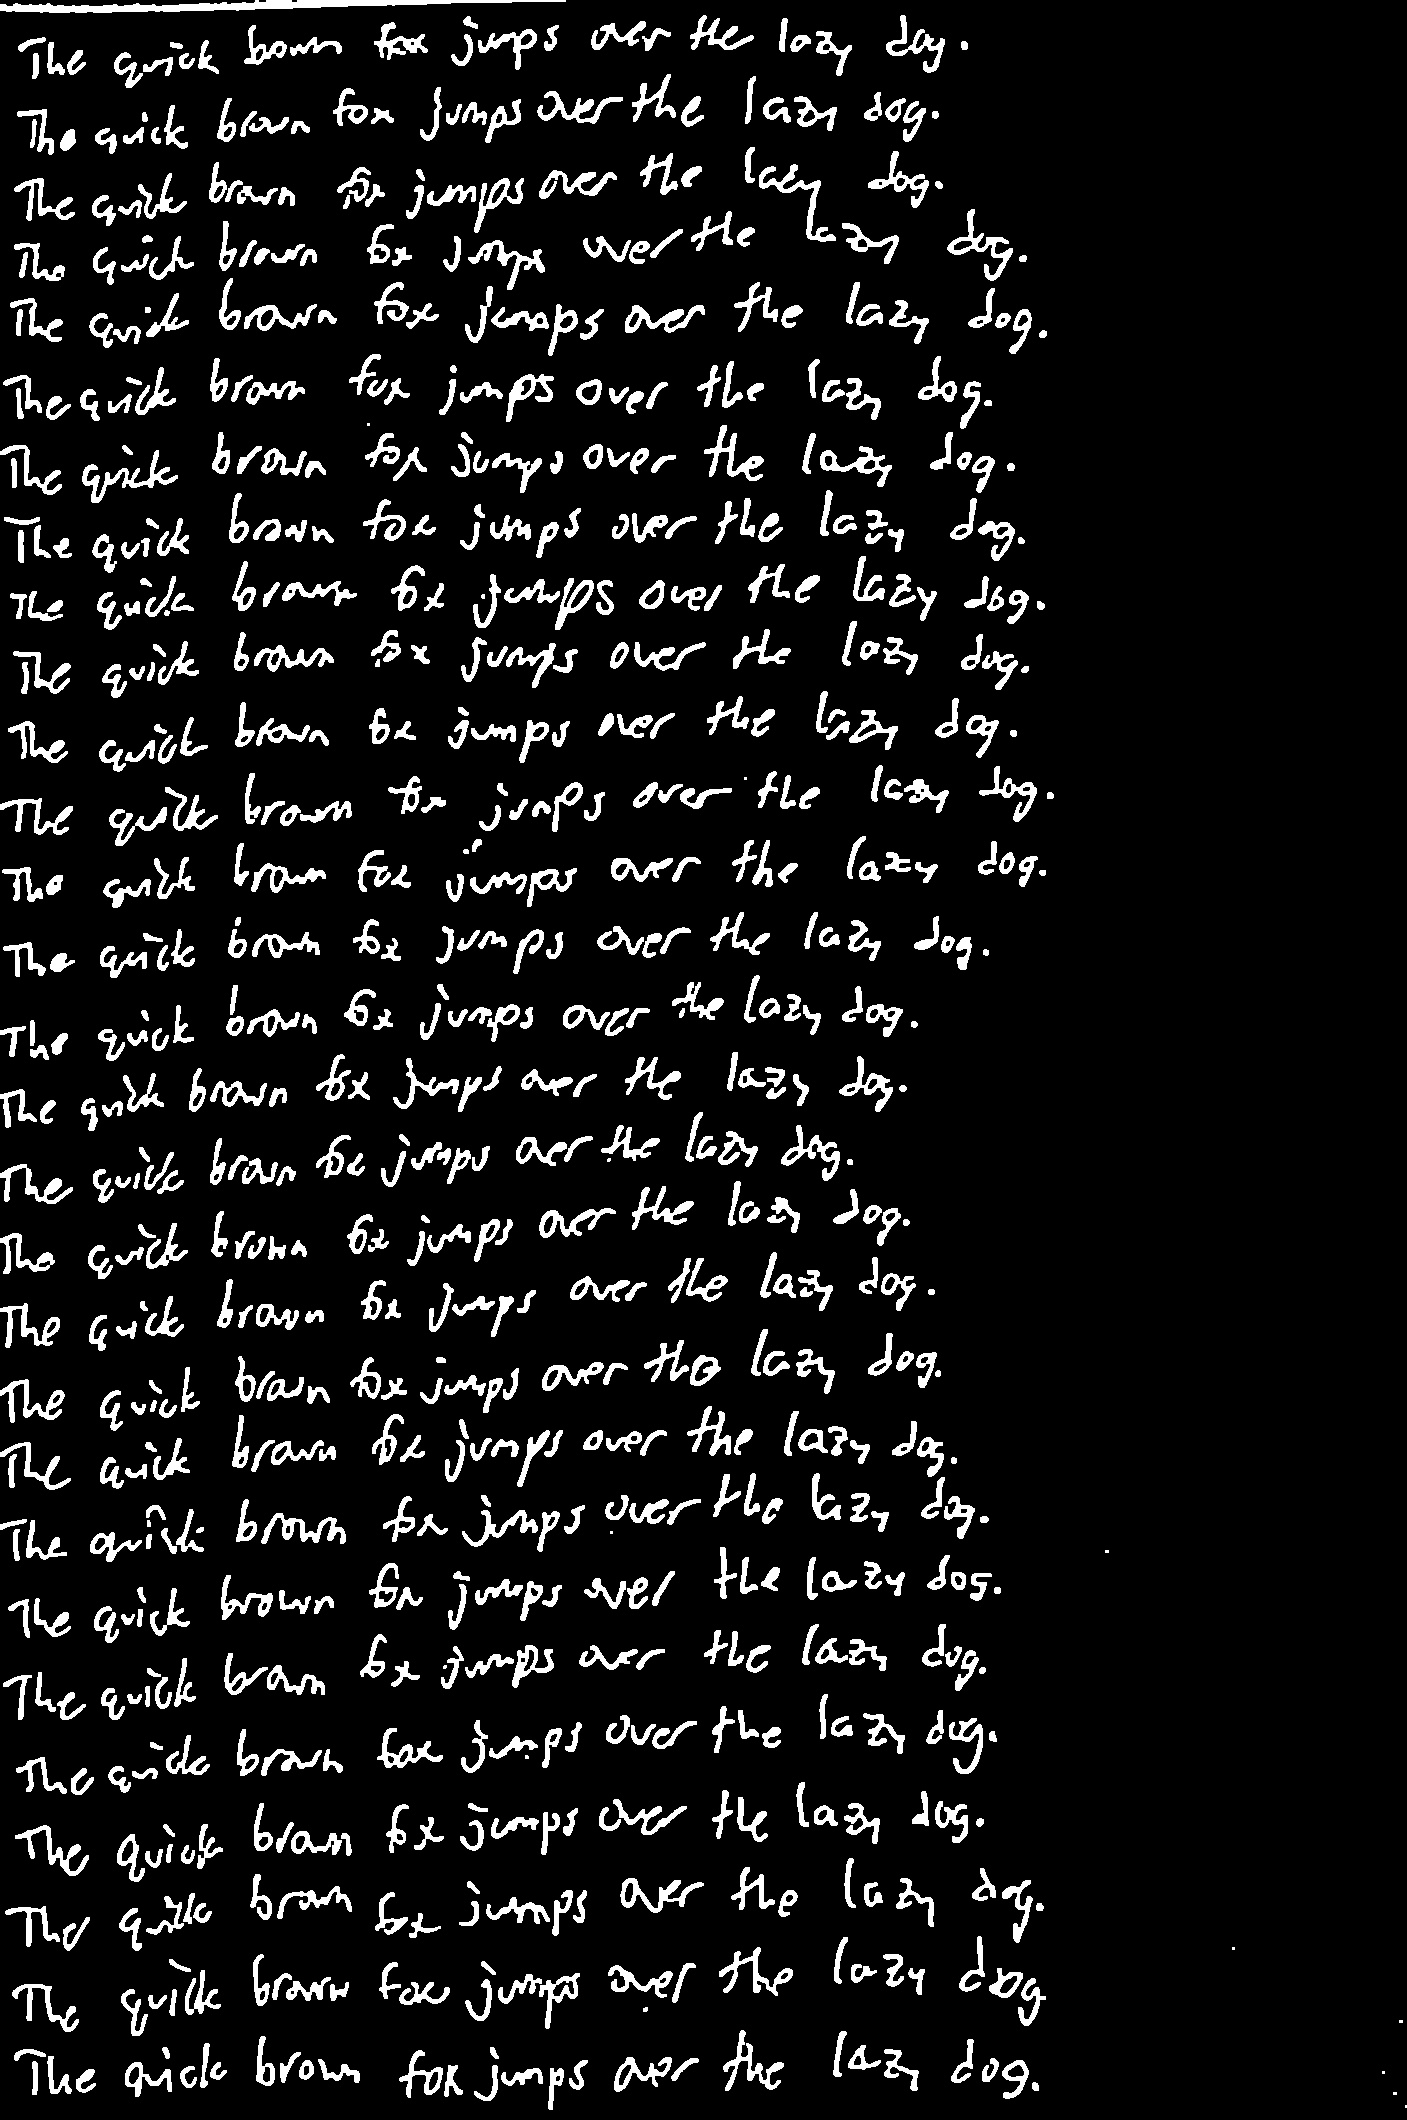 The quick bown fox jumps over the lazy dog.
The quick brown fox jumps over the lazy dog.
The quick brown fox jumps over the lazy dog.
The quick brown fox jumps over the lazy dog.
The quick brown fox jumps over the lazy dog.
The quick brown fox jumps over the lazy dog.
The quick brown fox jumps over the lazy dog.
The quick brown fox jumps over the lazy dog.
The quick brown fox jumps over the lazy dog.
The quick brown fox jumps over the lazy dog.
The quick brown fox jumps over the lazy dog.
The quick brown fox jumps over the lazy dog.
The quick brown fox jumps over the lazy dog.
The quick brown fox jumps over the lazy dog.
The quick brown fox jumps over the lazy dog.
The quick brown fox jumps over the lazy dog.
The quick brown fox jumps over the lazy dog.
The quick brown fox jumps over the lazy dog.
The quick brown fox jumps over the lazy dog.
The quick brown fox jumps over the lazy dog.
The quick brown fox jumps over the lazy dog.
The quick brown fox jumps over the lazy dog.
The quick brown fox jumps over the lazy dog.
The quick brown fox jumps over the lazy dog.
The quick brown fox jumps over the lazy dog.
The quick brown fox jumps over the lazy dog.
The quick brown fox jumps over the lazy dog.
The quick brown fox jumps over the lazy dog
The quick brown fox jumps over the lazy dog.